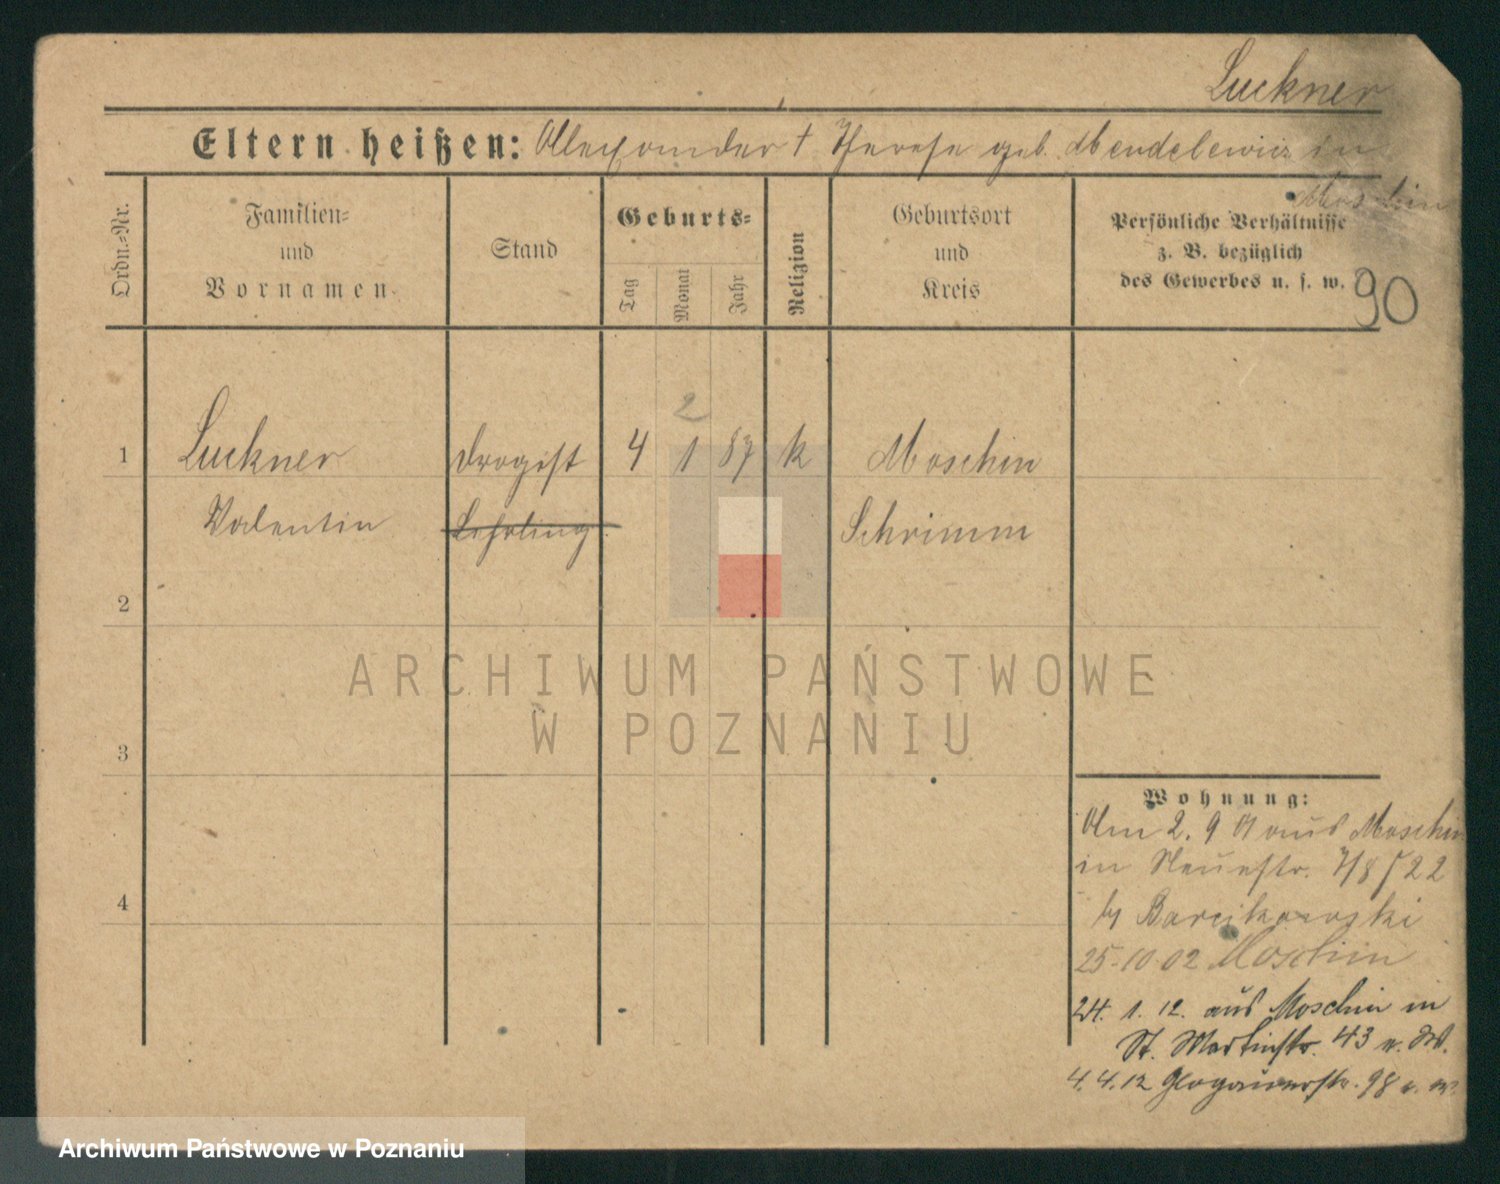 Luckner
Eltern heißen: Alexander † Therese geb. Mendelewicz in
Moschin
Ordn.-Nr.
Familien-
und
Vornamen
Stand
Geburts-
Tag
Monat
Jahr
Religion
Geburtsort
und
Kreis
Persönliche Verhältnisse
z. B. bezüglich
des Gewerbes u. s. w.
90
2
1 Luckner Drogist 4 1 87 k Moschin
Valentin Lehrling Schrimm
2
ARCHIWUM PAŃSTWOWE
W POZNANIU
3
Wohnung:
Am 2. 9 01 aus Moschin
in Neuestr. 7/8 22
b/ Barcikowski
4
25-10 02 Moschin
24. 1. 12. aus Moschin in
St. Martinstr. 43 v.
4. 4. 12 Glogauerstr. 98
Archiwum Państwowe w Poznaniu